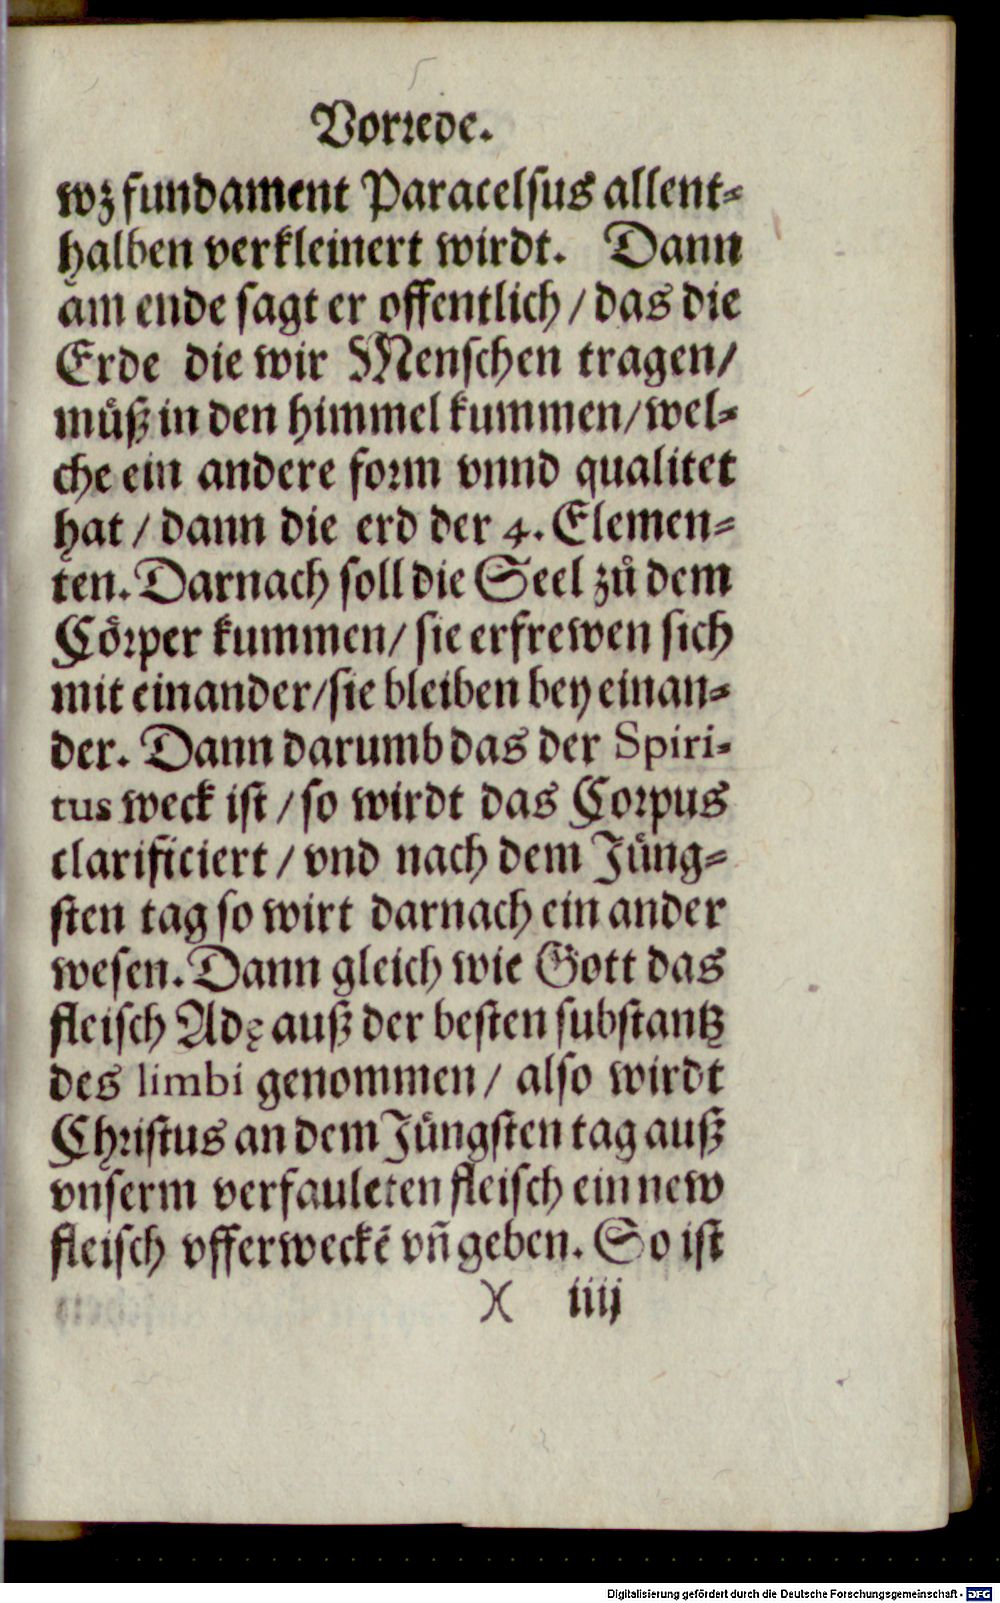 Vorrede.
wz fundament Paracelsus allent-
halben verkleinert wirdt. Dann
am ende sagt er offentlich / das die
Erde die wir Menschen tragen/
můß in den himmel kummen/wel-
che ein andere form vnnd qualitet
hat / dann die erd der 4. Elemen-
ten. Darnach soll die Seel zů dem
Cörper kummen/ sie erfrewen sich
mit einander/sie bleiben bey einan-
der. Dann darumb das der Spiri-
tus weck ist / so wirdt das Corpus
clarificiert / vnd nach dem Jüng-
sten tag so wirt darnach ein ander
wesen. Dann gleich wie Gott das
fleisch Adę auß der besten substantz
des limbi genommen / also wirdt
Christus an dem Jüngsten tag auß
vnserm verfauleten fleisch ein new
fleisch vfferweckē vñ geben. So ist
)( iiij
Digitalisierung gefördert durch die Deutsche Forschungsgemeinschaft - DFG